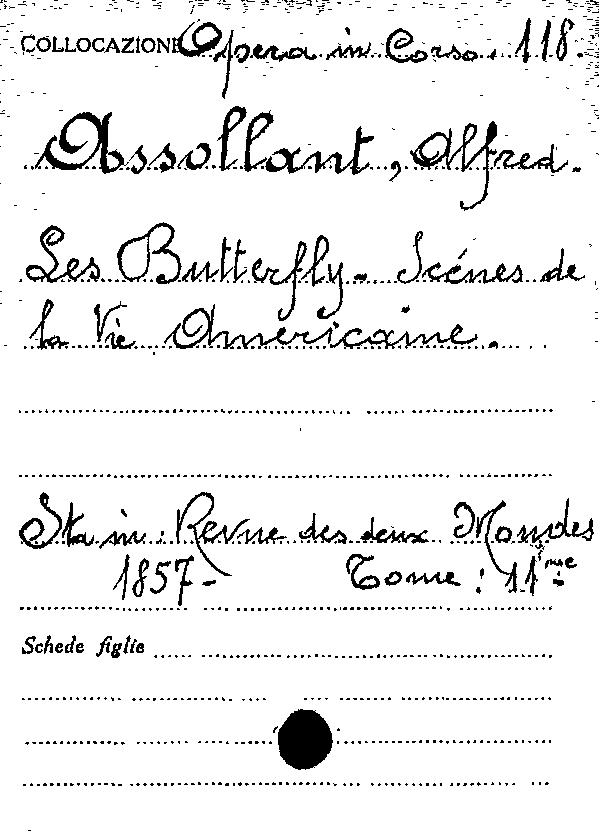 COLLOCAZIONE Opera in Corso. 118.
Assollant, Alfred.
Les Butterfly. Scénes de
la Vie Américaine.
Sta in: Revue des deux Mondes
1857- Tome: 11me
Schede figlie